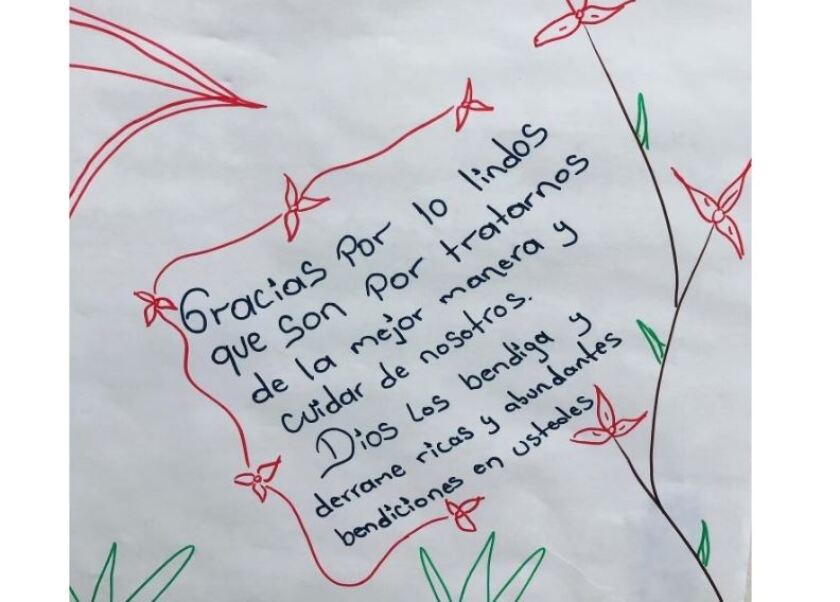 Gracias Por lo lindos
que son por tratarnos
de la mejor manera y
cuidar de nosotros.
Dios Los bendiga y
derrame ricas y abundantes
bendiciones en ustedes